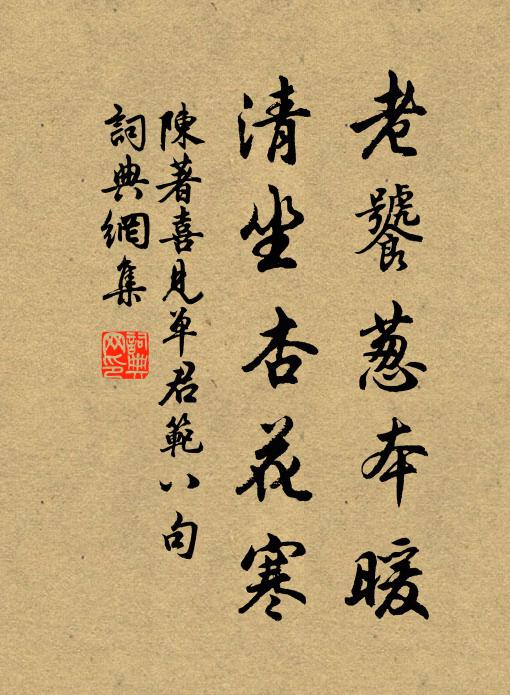 老饕葱本暖
清坐杏花寒
陳著喜見单君範八句
詞典網集
詞典网印